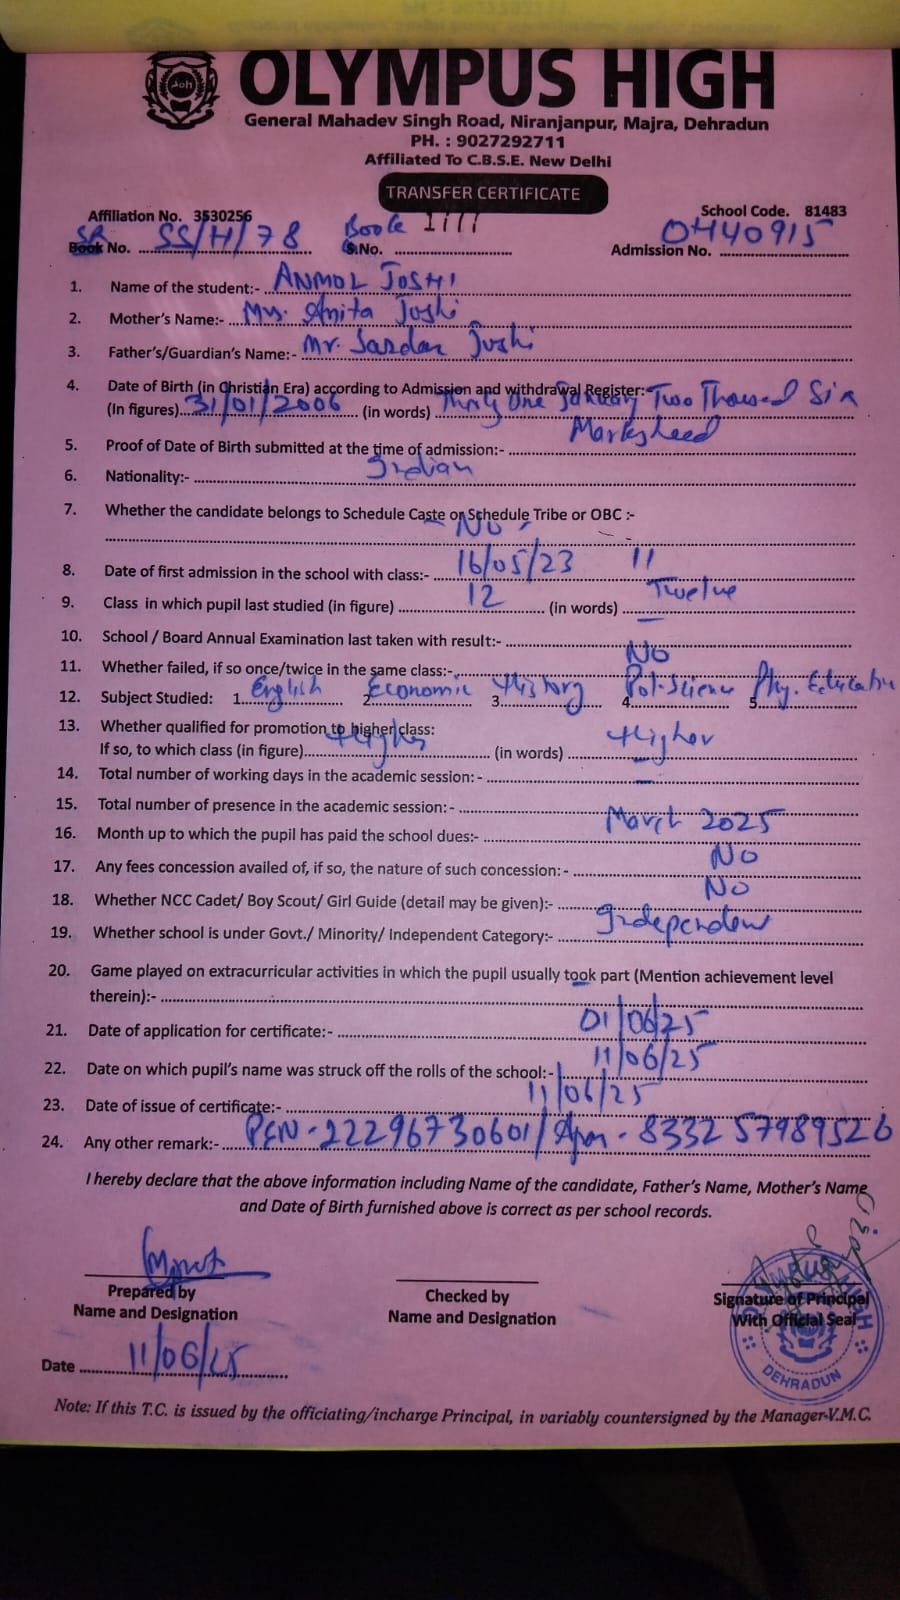 OLYMPUS HIGH
General Mahadev Singh Road, Niranjanpur, Majra, Dehradun
PH. : 9027292711
Affiliated To C.B.S.E. New Delhi
TRANSFER CERTIFICATE
Affiliation No. 3530256 School Code. 81483
SR Book No. SS/H/78 Book S.No. 1777 Admission No. OH40915
1. Name of the student:- ANMOL JOSHI
2. Mother's Name:- Mrs. Anita Joshi
3. Father's/Guardian's Name:- Mr. Sardar Joshi
4. Date of Birth (in Christian Era) according to Admission and withdrawal Register:-
(In figures) 31/01/2006 (in words) Thirty One January Two Thousand Six
5. Proof of Date of Birth submitted at the time of admission:- Marksheed
6. Nationality:- Indian
7. Whether the candidate belongs to Schedule Caste or Schedule Tribe or OBC :-
No
8. Date of first admission in the school with class:- 16/05/23 11
9. Class in which pupil last studied (in figure) 12 (in words) Twelve
10. School / Board Annual Examination last taken with result:- —
11. Whether failed, if so once/twice in the same class:- No
12. Subject Studied: 1. English 2. Economic 3. History 4. Pol-Science 5. Phy. Education
13. Whether qualified for promotion to higher class:
If so, to which class (in figure) Higher (in words) Higher
14. Total number of working days in the academic session: - —
15. Total number of presence in the academic session: -
16. Month up to which the pupil has paid the school dues:- March 2025
17. Any fees concession availed of, if so, the nature of such concession: - No
18. Whether NCC Cadet/ Boy Scout/ Girl Guide (detail may be given):- No
19. Whether school is under Govt./ Minority/ Independent Category:- Independent
20. Game played on extracurricular activities in which the pupil usually took part (Mention achievement level
therein):-
21. Date of application for certificate:- 01/06/25
22. Date on which pupil's name was struck off the rolls of the school:- 11/06/25
23. Date of issue of certificate:- 11/06/25
24. Any other remark:- PEN - 22296730601/ Apar - 833257989526
I hereby declare that the above information including Name of the candidate, Father's Name, Mother's Name
and Date of Birth furnished above is correct as per school records.
Prepared by Checked by Signature of Principal
Name and Designation Name and Designation With Official Seal
DEHRADUN
Date 11/06/25
Note: If this T.C. is issued by the officiating/incharge Principal, in variably countersigned by the Manager-V.M.C.